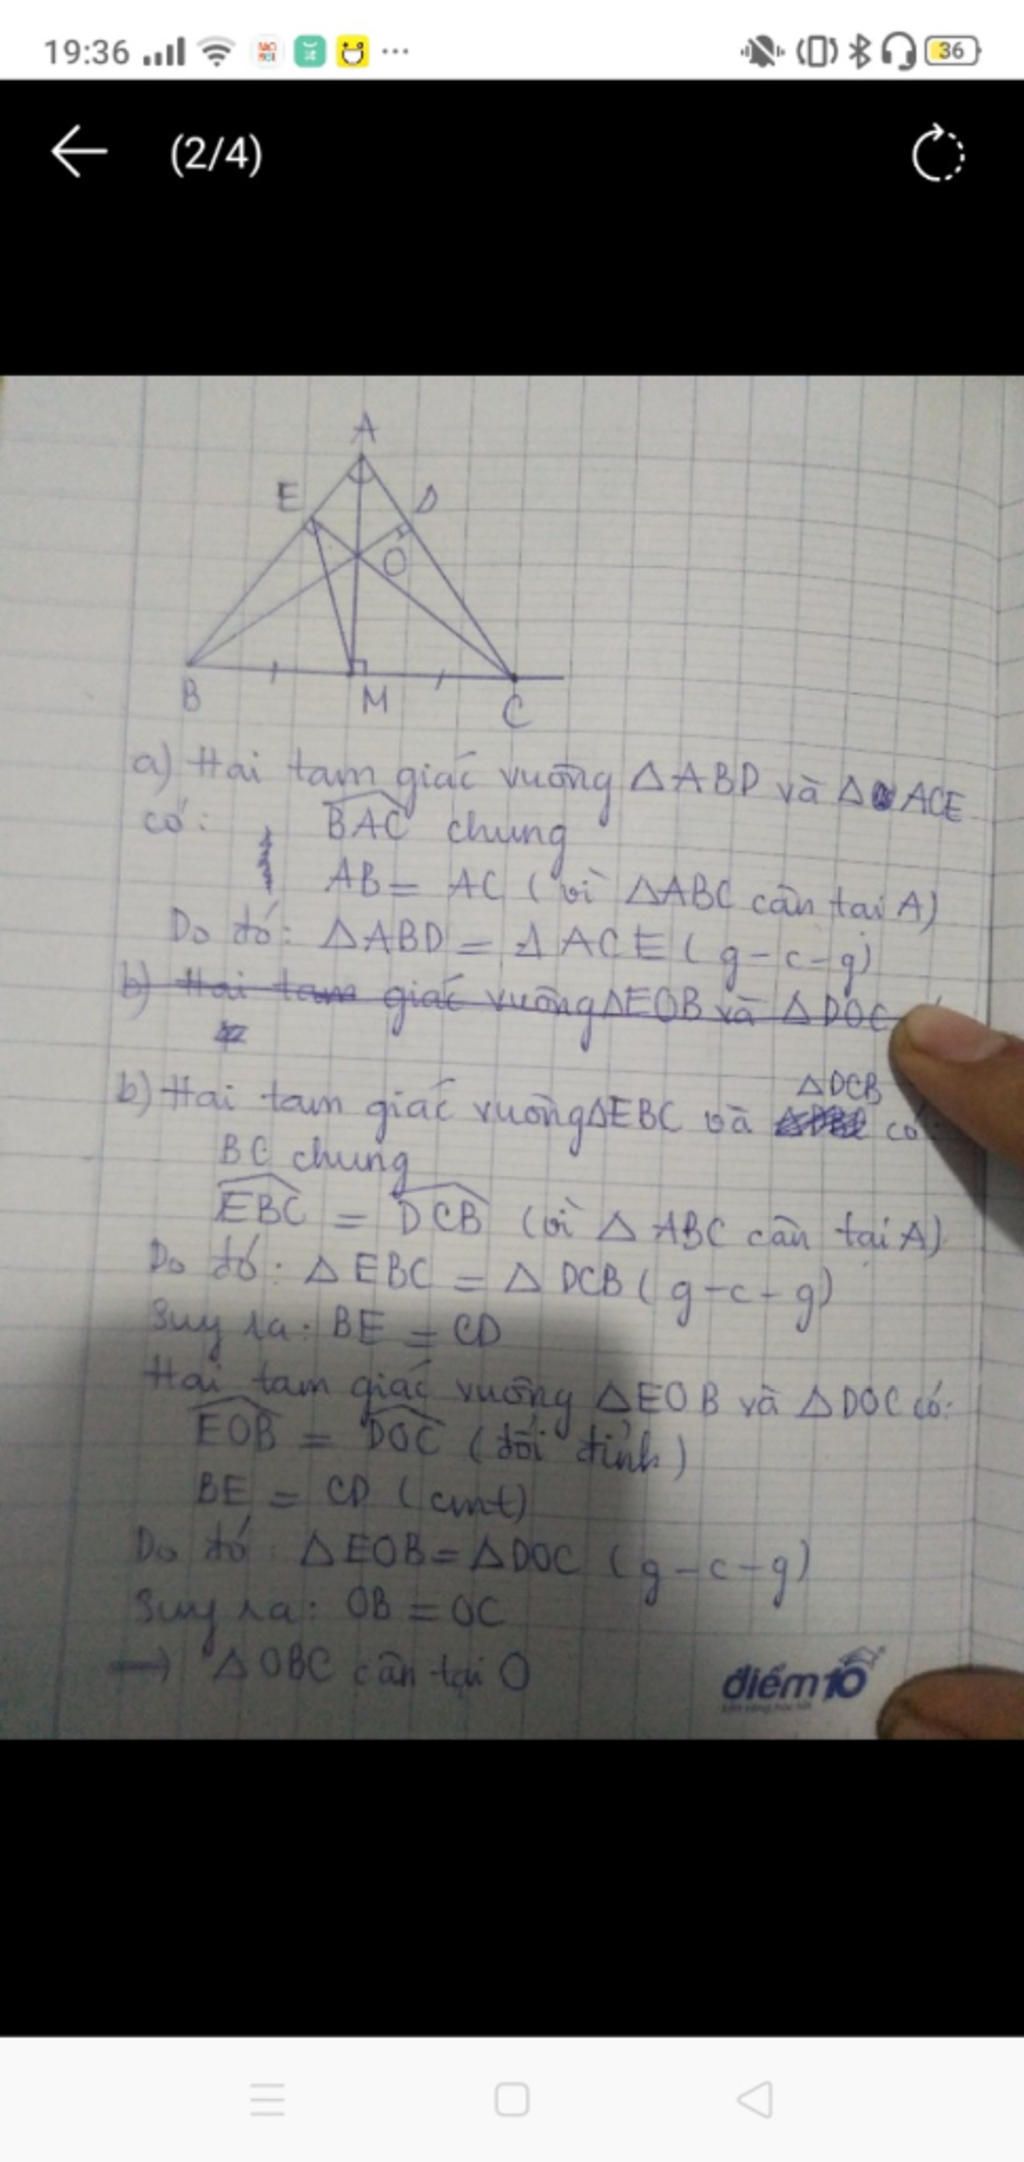 19:36
36
(2/4)
A
E
D
O
B
M
C
a) Hai tam giác vuông △ABD và △ACE
có: BAC chung
AB = AC (vì △ABC cân tại A)
Do đó: △ABD = △ACE (g-c-g)
b) Hai tam giác vuông △EOB và △DOC
△DCB
b) Hai tam giác vuông △EBC và có
BC chung
EBC = DCB (vì △ABC cân tại A)
Do đó: △EBC = △DCB (g-c-g)
Suy ra: BE = CD
Hai tam giác vuông △EOB và △DOC có:
EOB = DOC (đối đỉnh)
BE = CD (cmt)
Do đó: △EOB = △DOC (g-c-g)
Suy ra: OB = OC
→ △OBC cân tại O
điểm10